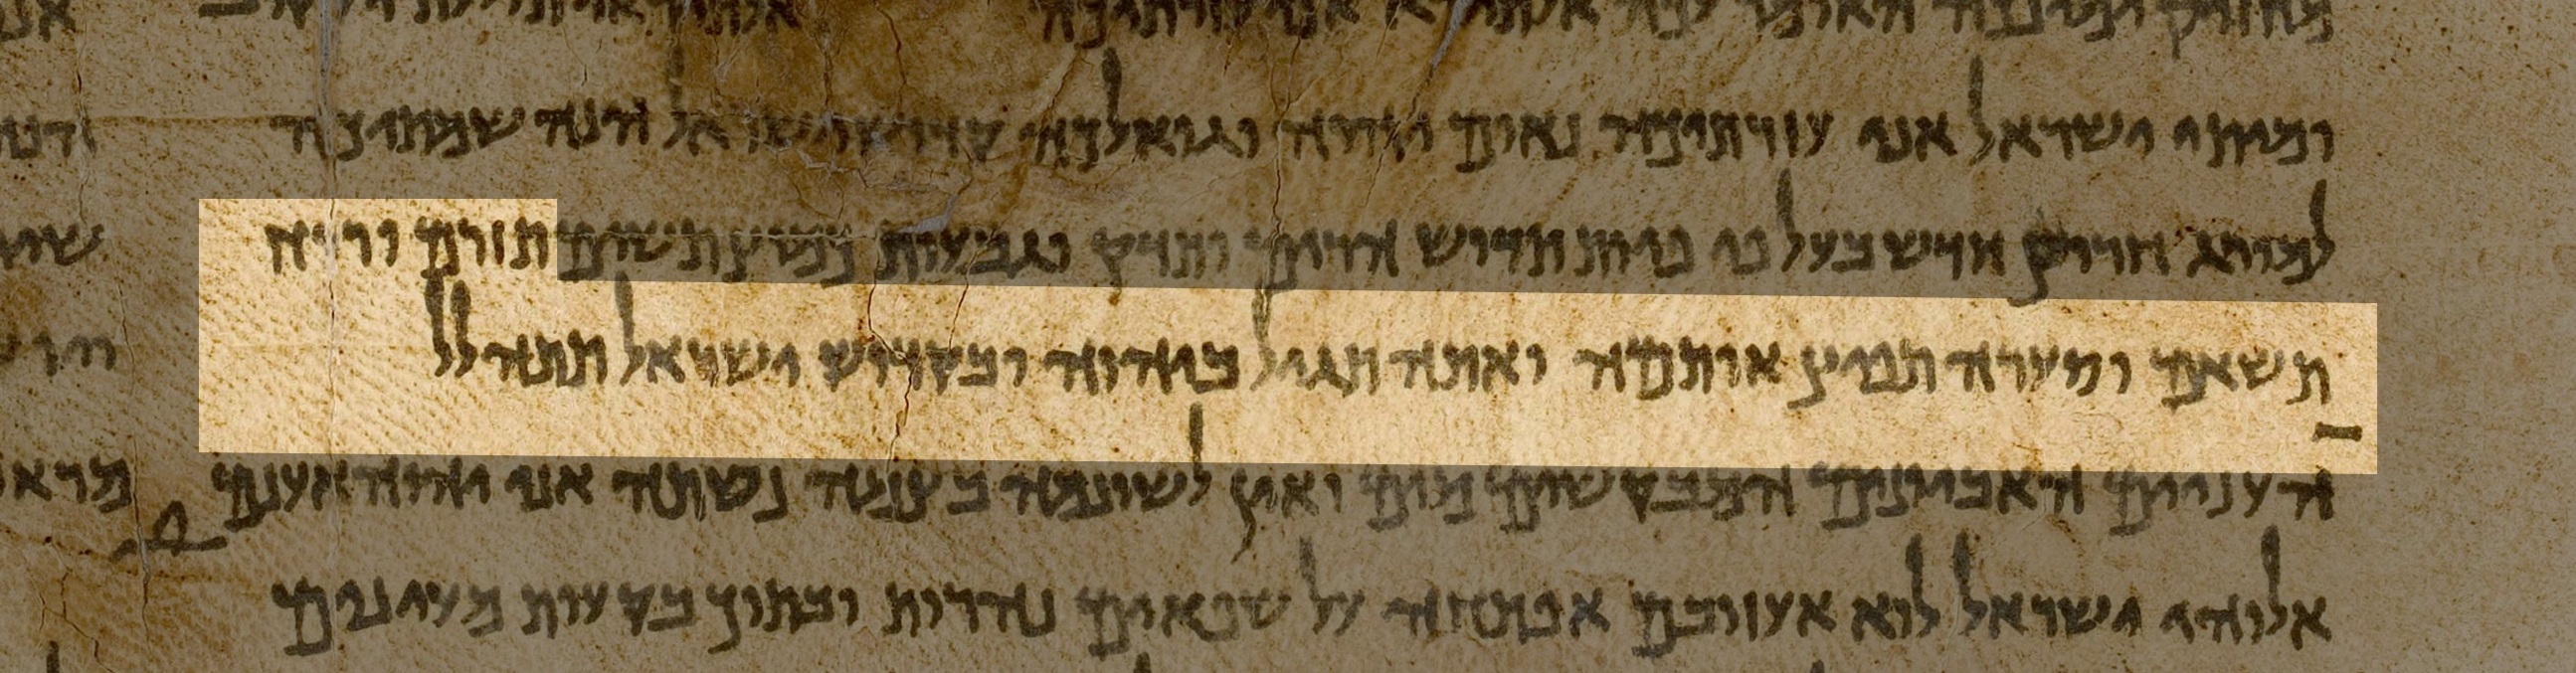 מחזיק ימינכה האומר לכה אל תירא אני עזרתיכה
ומיתי ישראל אני עזרתיכה נאום יהוה וגואלכה קדוש ישראל הנה שמתיכה
למורג חרוץ חדש בעל פי פיות תדוש הרים ותדק וגבעות כמוץ תשים תזרם ורוח
תשאם וסערה תפיץ אותמה ואתה תגיל ביהוה ובקדוש ישראל תתהלל
העניים האביונים המבקשים מים ואין לשונמה בצמה נשתה אני יהוה אענם
אלוהי ישראל לוא אעוזבם אפתחה על שפאים נהרות ובתוך בקעות מעינים